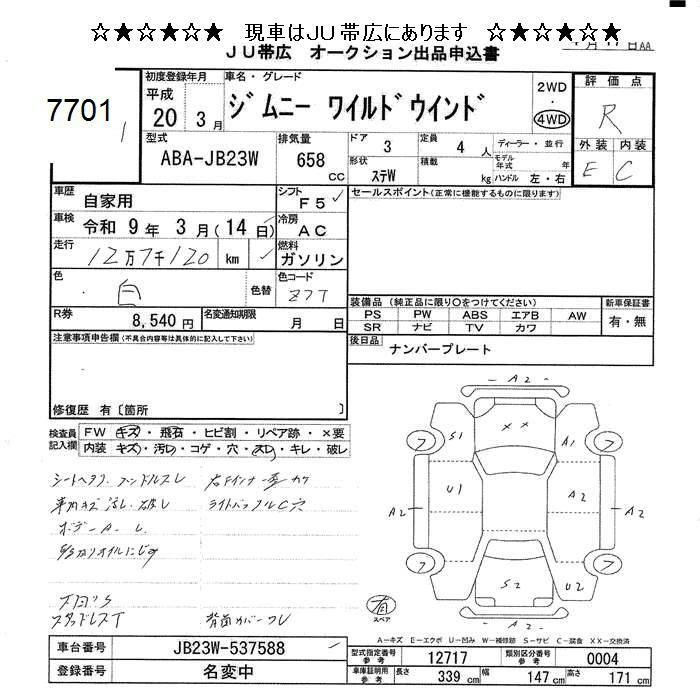 ☆★☆★☆★☆ 現車はＪＵ帯広にあります ☆★☆★☆★☆
ＪＵ帯広 オークション出品申込書
7701
初度登録年月
平成 20 3 月
車名・グレード
ジムニー ワイルドウインド
2WD ・ 4WD
評価点
R
型式
ABA-JB23W
排気量
658 CC
ドア 3
定員 4 人
ディーラー・並行
形状 ステW
積載 kg
モデル年式 年
ハンドル 左・右
外装 内装
E C
車歴
自家用
シフト
F5
セールスポイント(正常に機能するものに限ります)
車検
令和 9 年 3 月( 14 日)
冷房
AC
走行
12万7千120 km
燃料
ガソリン
色
白
色替
色コード
Z7T
R券
8,540 円
名変通知期限
月 日
装備品 (純正品に限り○をつけてください)
新車保証書
PS PW ABS エアB AW
SR ナビ TV カワ
有・無
後日品
ナンバープレート
注意事項申告欄(不具合内容等は具体的に記入して下さい)
修復歴 有〔箇所 〕
検査員記入欄
FW キズ・飛石・ヒビ割・リペア跡・×要
内装 キズ・汚レ・コゲ・穴・スレ・キレ・破レ
ライトバックルC穴
スタッドレスT
背面カバーワレ
A2
S1
A1
フ
フ
U1
A2
A2
A2
フ
フ
S2
U2
A2
有
スペア
A－キズ E－エクボ U－凹み W－補修跡 S－サビ C－腐食 XX－交換済
車台番号
JB23W-537588
登録番号
名変中
型式指定番号 参考
12717
類別区分番号 参考
0004
車庫証明用 参考
長さ 339 cm
幅 147 cm
高さ 171 cm